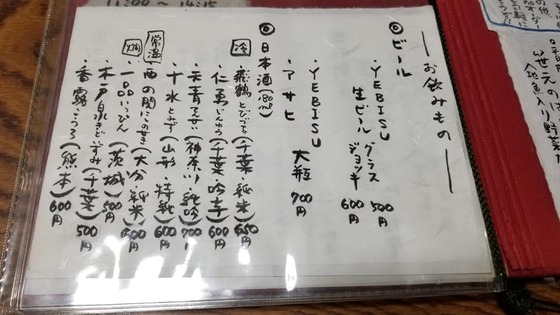 11:00 〜 14:15
お飲みもの
◎ビール
・YEBISU
生ビール グラス 500円
ジョッキ 600円
・YEBISU
・アサヒ 大瓶 700円
◎日本酒
冷
・飛鶴 とびづる (千葉・純米) 650円
・仁勇 じんゆう (千葉・吟辛) 600円
・天青 てんせい (神奈川・純吟) 700円
・十水 とみず (山形・特純) 600円
常温
・西の関 にしのせき (大分・純米)
・一品 いっぴん (茨城) 500円
・木戸泉 きどいずみ (千葉) 500円
・香露 こうろ (熊本) 600円